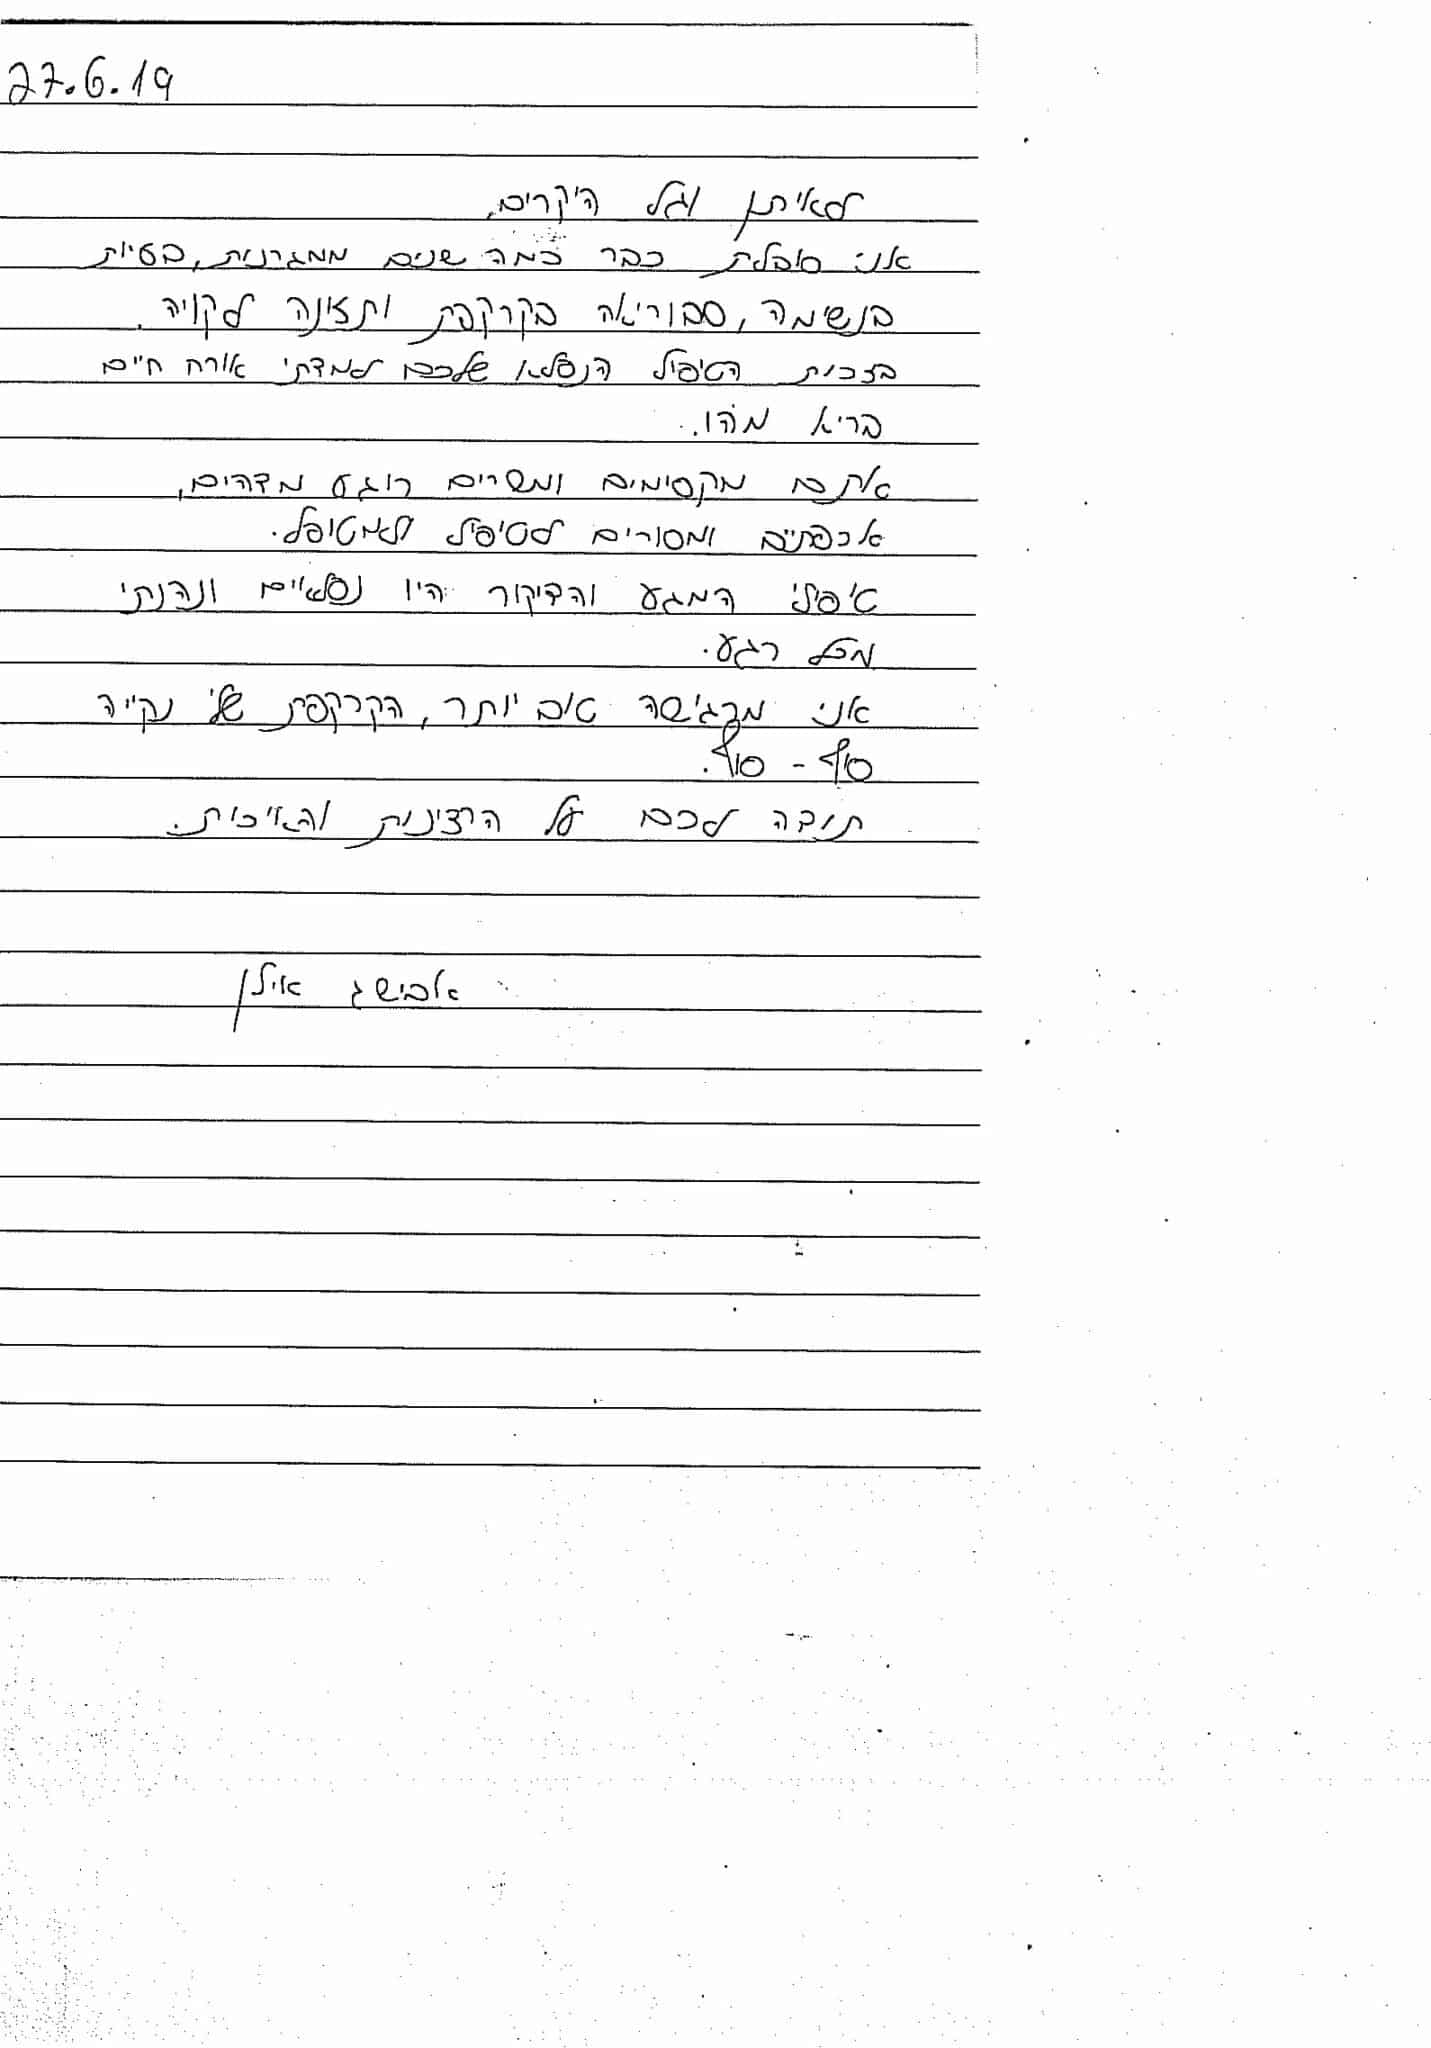 27.6.19
לאיתן וגל היקרים,
אני סובלת כבר כמה שנים ממגרנית, בעיות
בנשימה, סבוריאה בקרקפת ותזונה לקויה.
בזכות הטיפול הנפלא שלכם למדתי אורח חיים
בריא מהו.
אתם מקסימים ומשרים רוגע מדהים,
אכפתיים ומסורים לטיפול ולמטופל.
טיפולי המגע והדיקור היו נפלאים ונהנתי
מכל רגע.
אני מרגישה טוב יותר, הקרקפת שלי נקייה
סוף - סוף.
תודה לכם על הרצינות והאיכות.
אבישג אילן